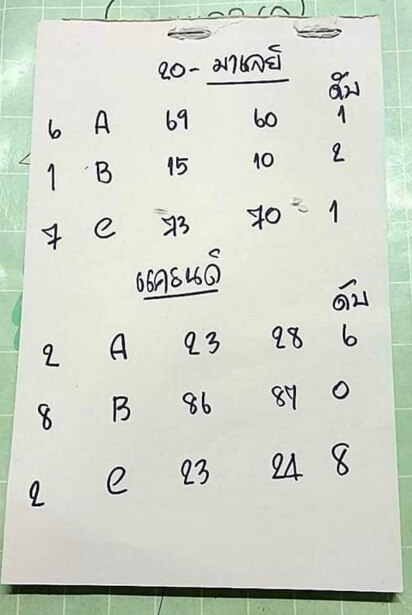 20- มาเลย์
ดับ
6 A 69 60 1
1 B 15 10 2
7 C 73 70 1
แคนดี้
ดับ
2 A 23 28 6
8 B 86 87 0
2 C 23 24 8